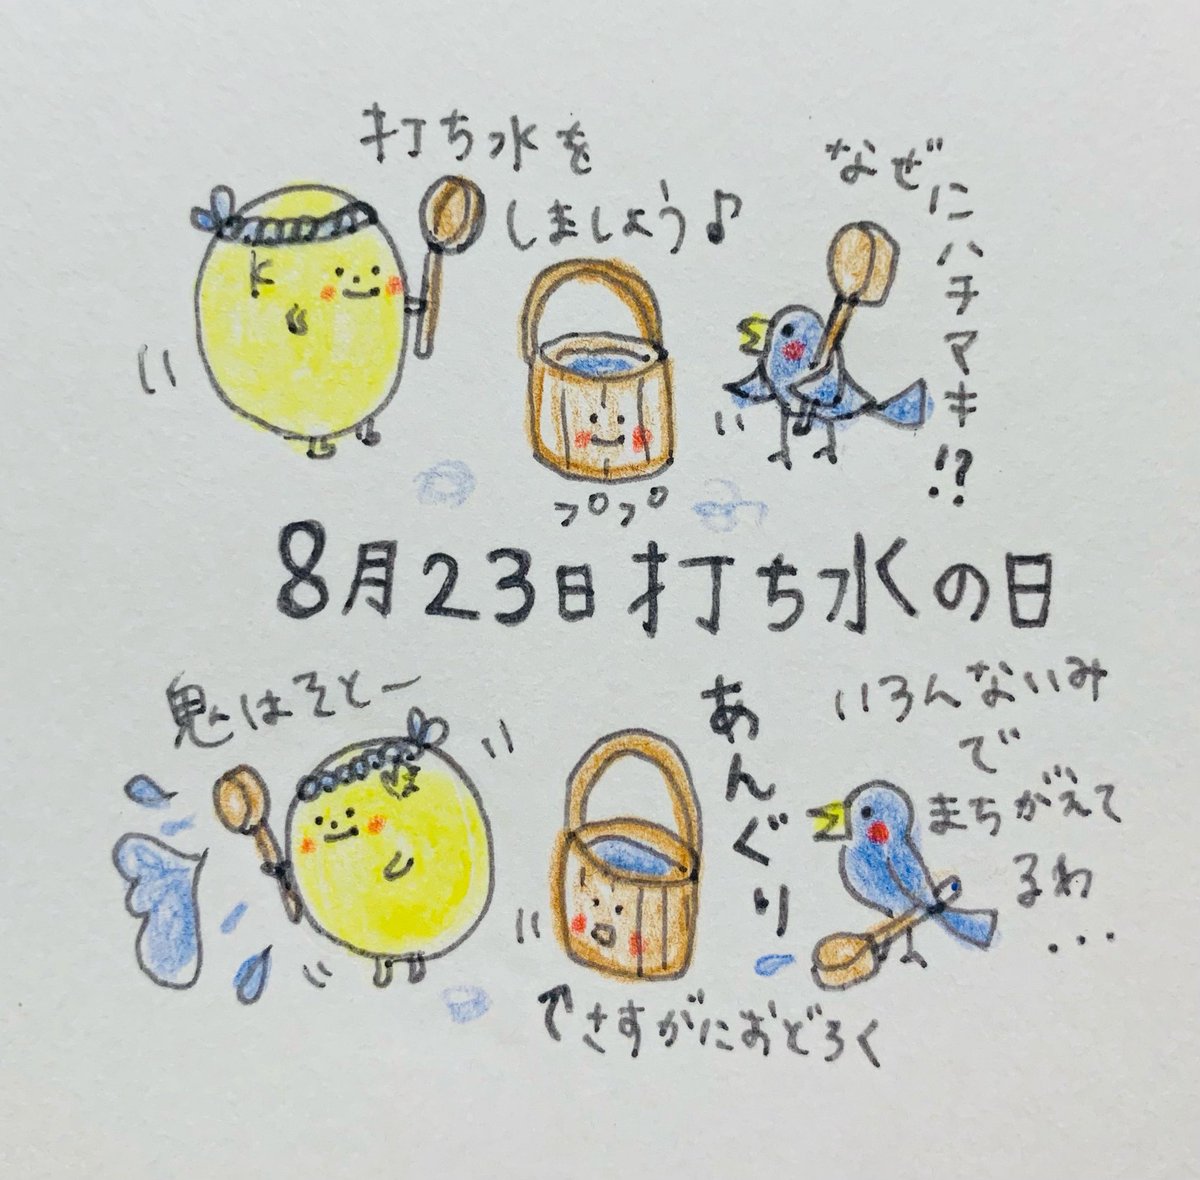 打ち水を
しましょう♪
なぜにハチマキ!?
プカプカ
8月23日打ち水の日
鬼はそとー
あんぐり
いろんないみ
で
まちがえて
るわ
...
↑さすがにおどろく